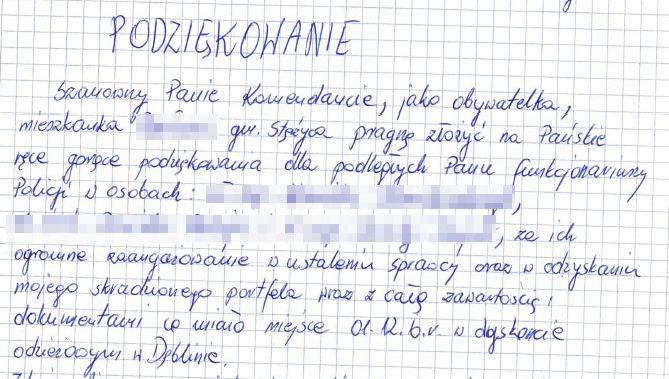 PODZIĘKOWANIE
Szanowny Panie Komendancie, jako obywatelka,
mieszkanka gm. Stężyca pragnę złożyć na Pańskie
ręce gorące podziękowania dla podległych Panu funkcjonariuszy
Policji w osobach:
, za ich
ogromne zaangażowanie w ustaleniu sprawcy oraz w odzyskaniu
mojego skradzionego portfela wraz z całą zawartością i
dokumentami co miało miejsce 01.12.b.r. w dyskoncie
odzieżowym w Dęblinie.